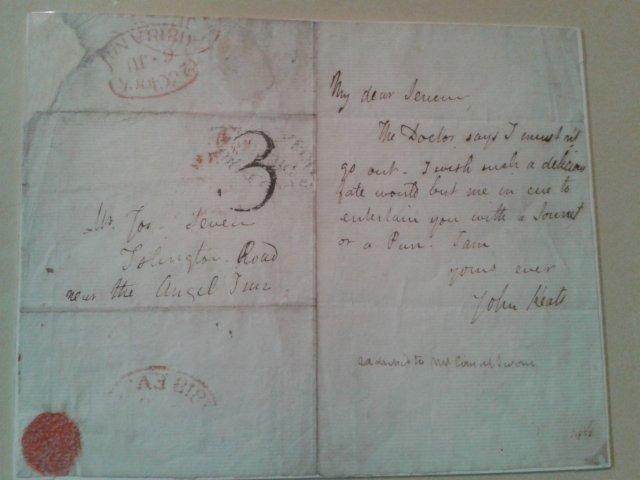 3
Mr. Jos. Severn
Islington Road
near the Angel Inn
My dear Severn,
The Doctor says I must not
go out. I wish such a delicious
fate would but me in cue to
entertain you with a Sonnet
or a Pun. I am
yours ever
John Keats